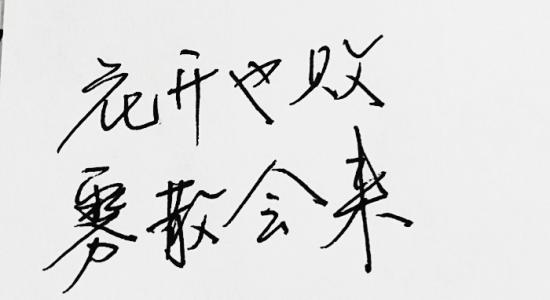 花开也败
雾散会来